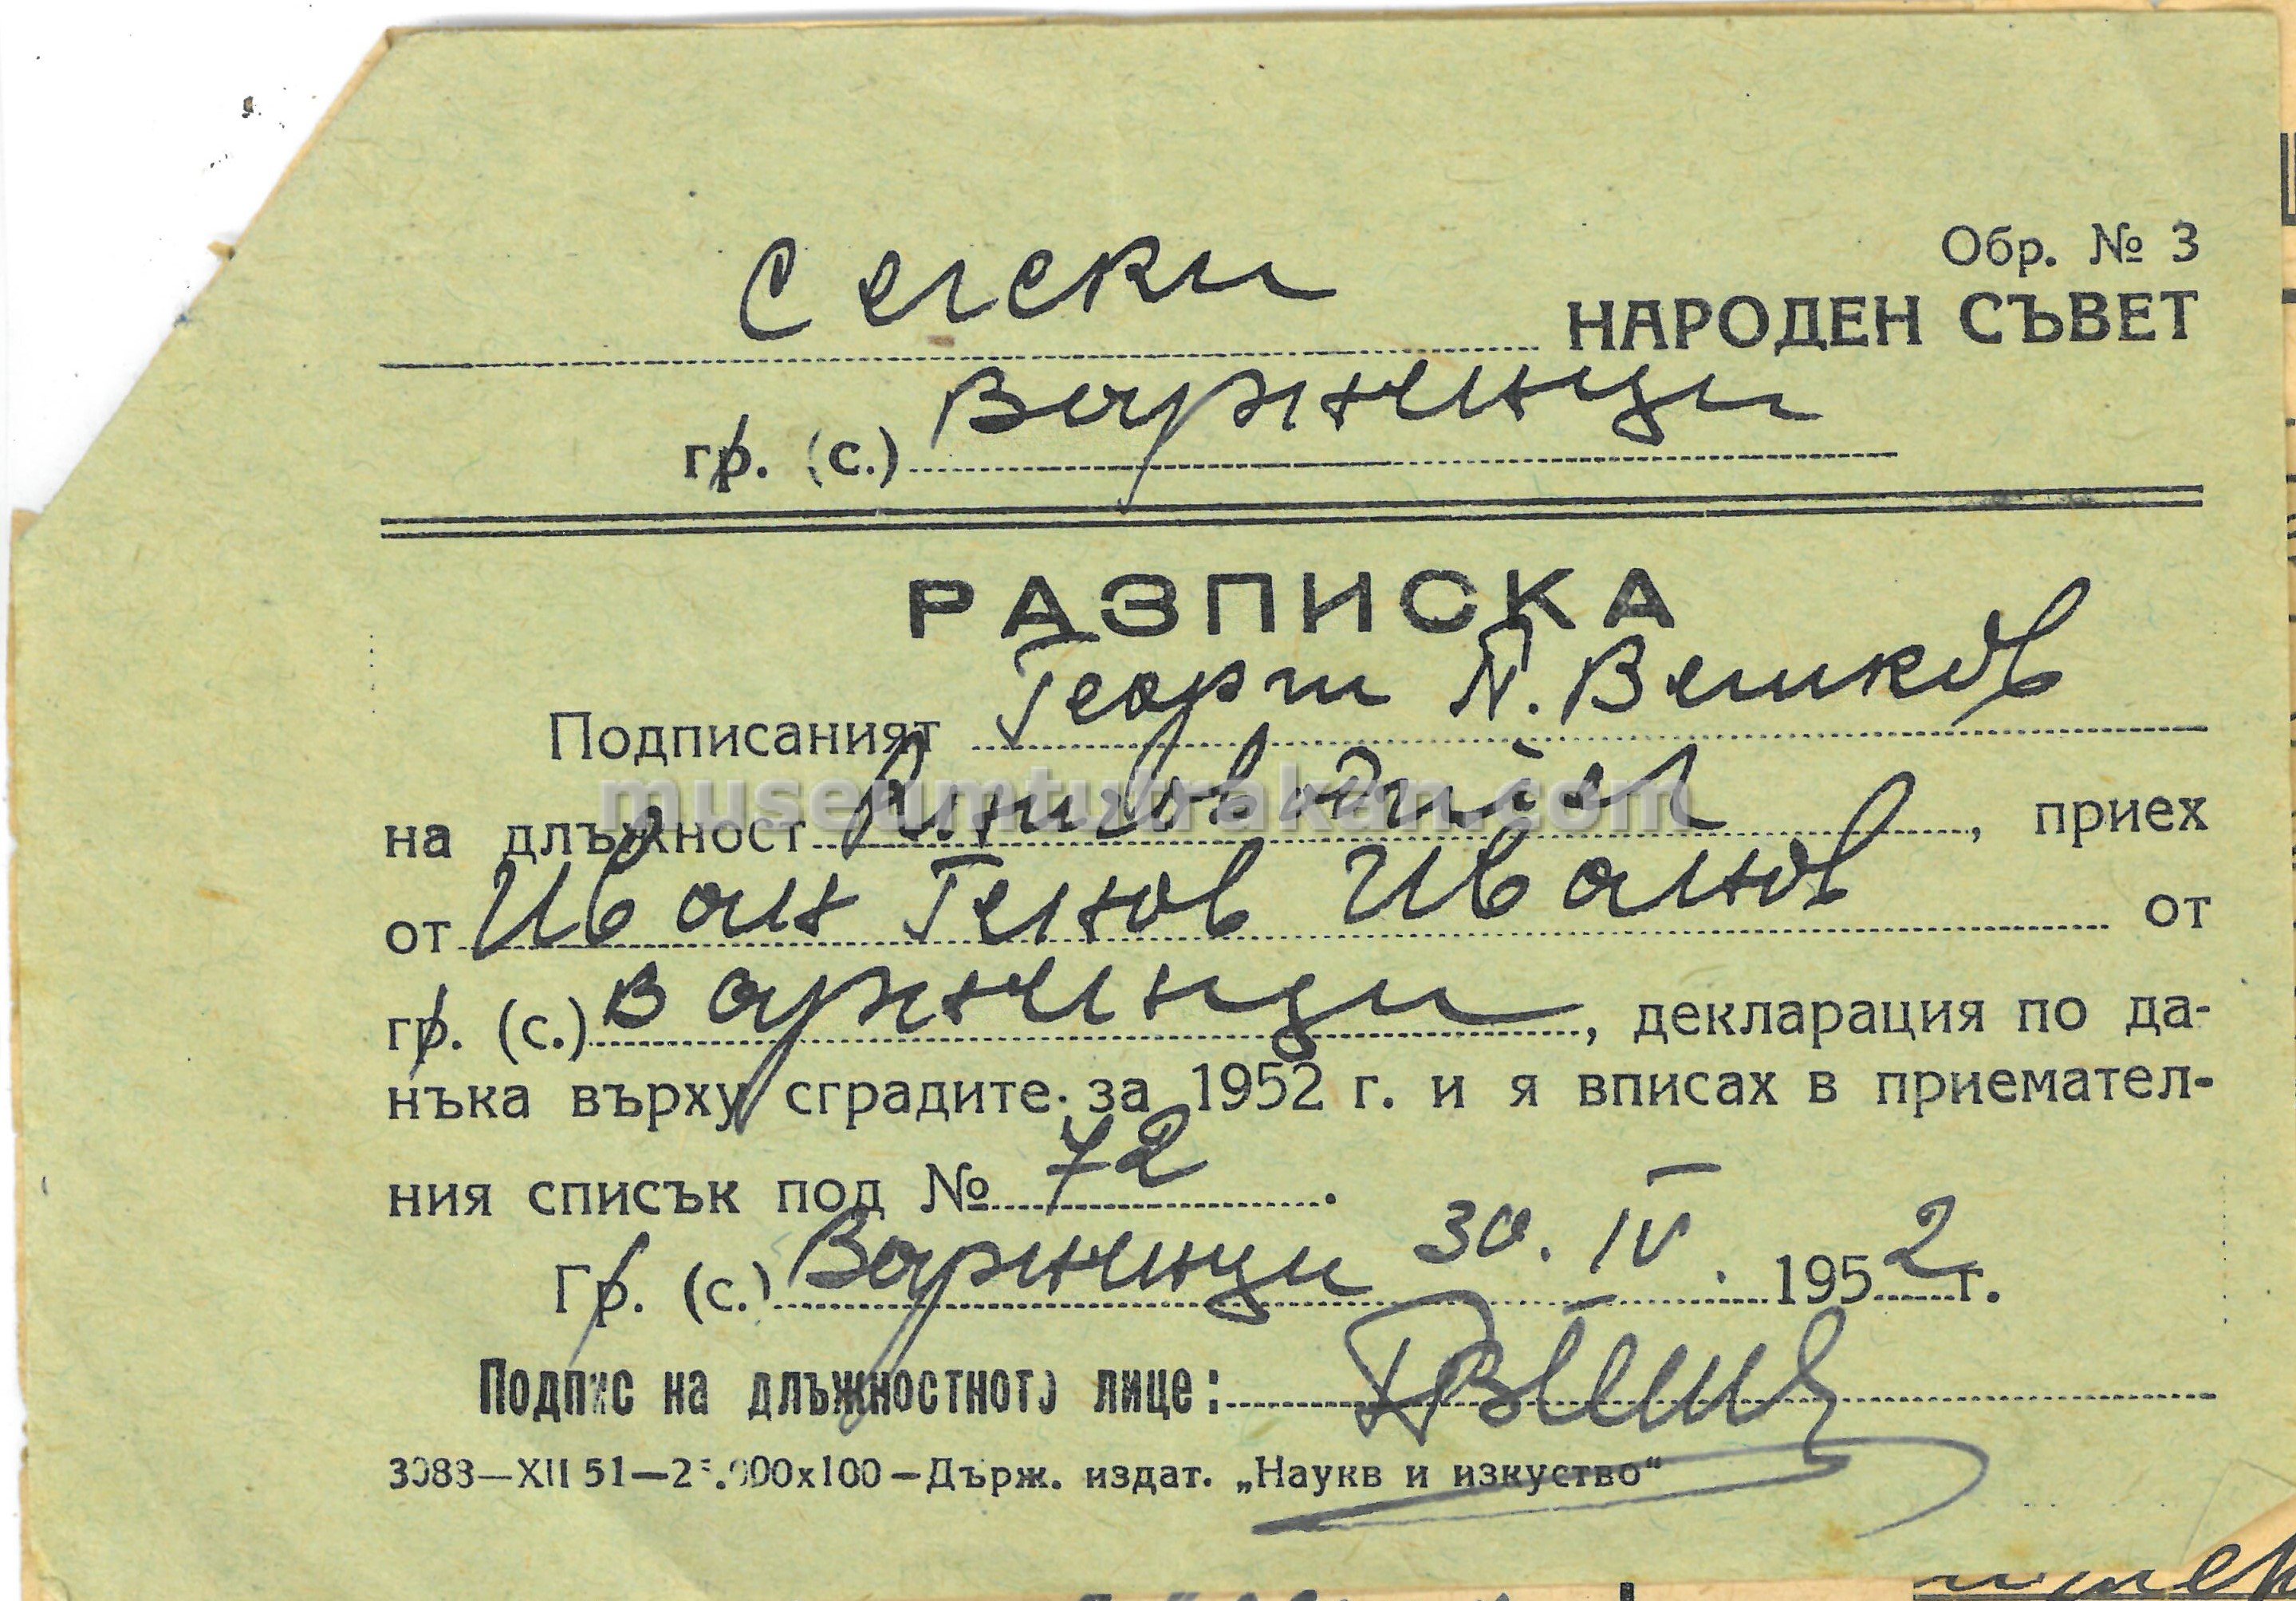 Обр. № 3
Селски НАРОДЕН СЪВЕТ
гр. (с.) Варненци
РАЗПИСКА
Подписаният Георги П. Великов
museumtutrakan.com
на длъжност , приех
от Иван Генов Иванов от
гр. (с.) Варненци, декларация по да-
нъка върху сградите за 1952 г. и я вписах в приемател-
ния списък под № 72.
Гр. (с.) Варненци 30. IV. 1952 г.
Подпис на длъжностното лице:
3088—XII 51—2 .000x100—Държ. издат. „Наукв и изкуство“